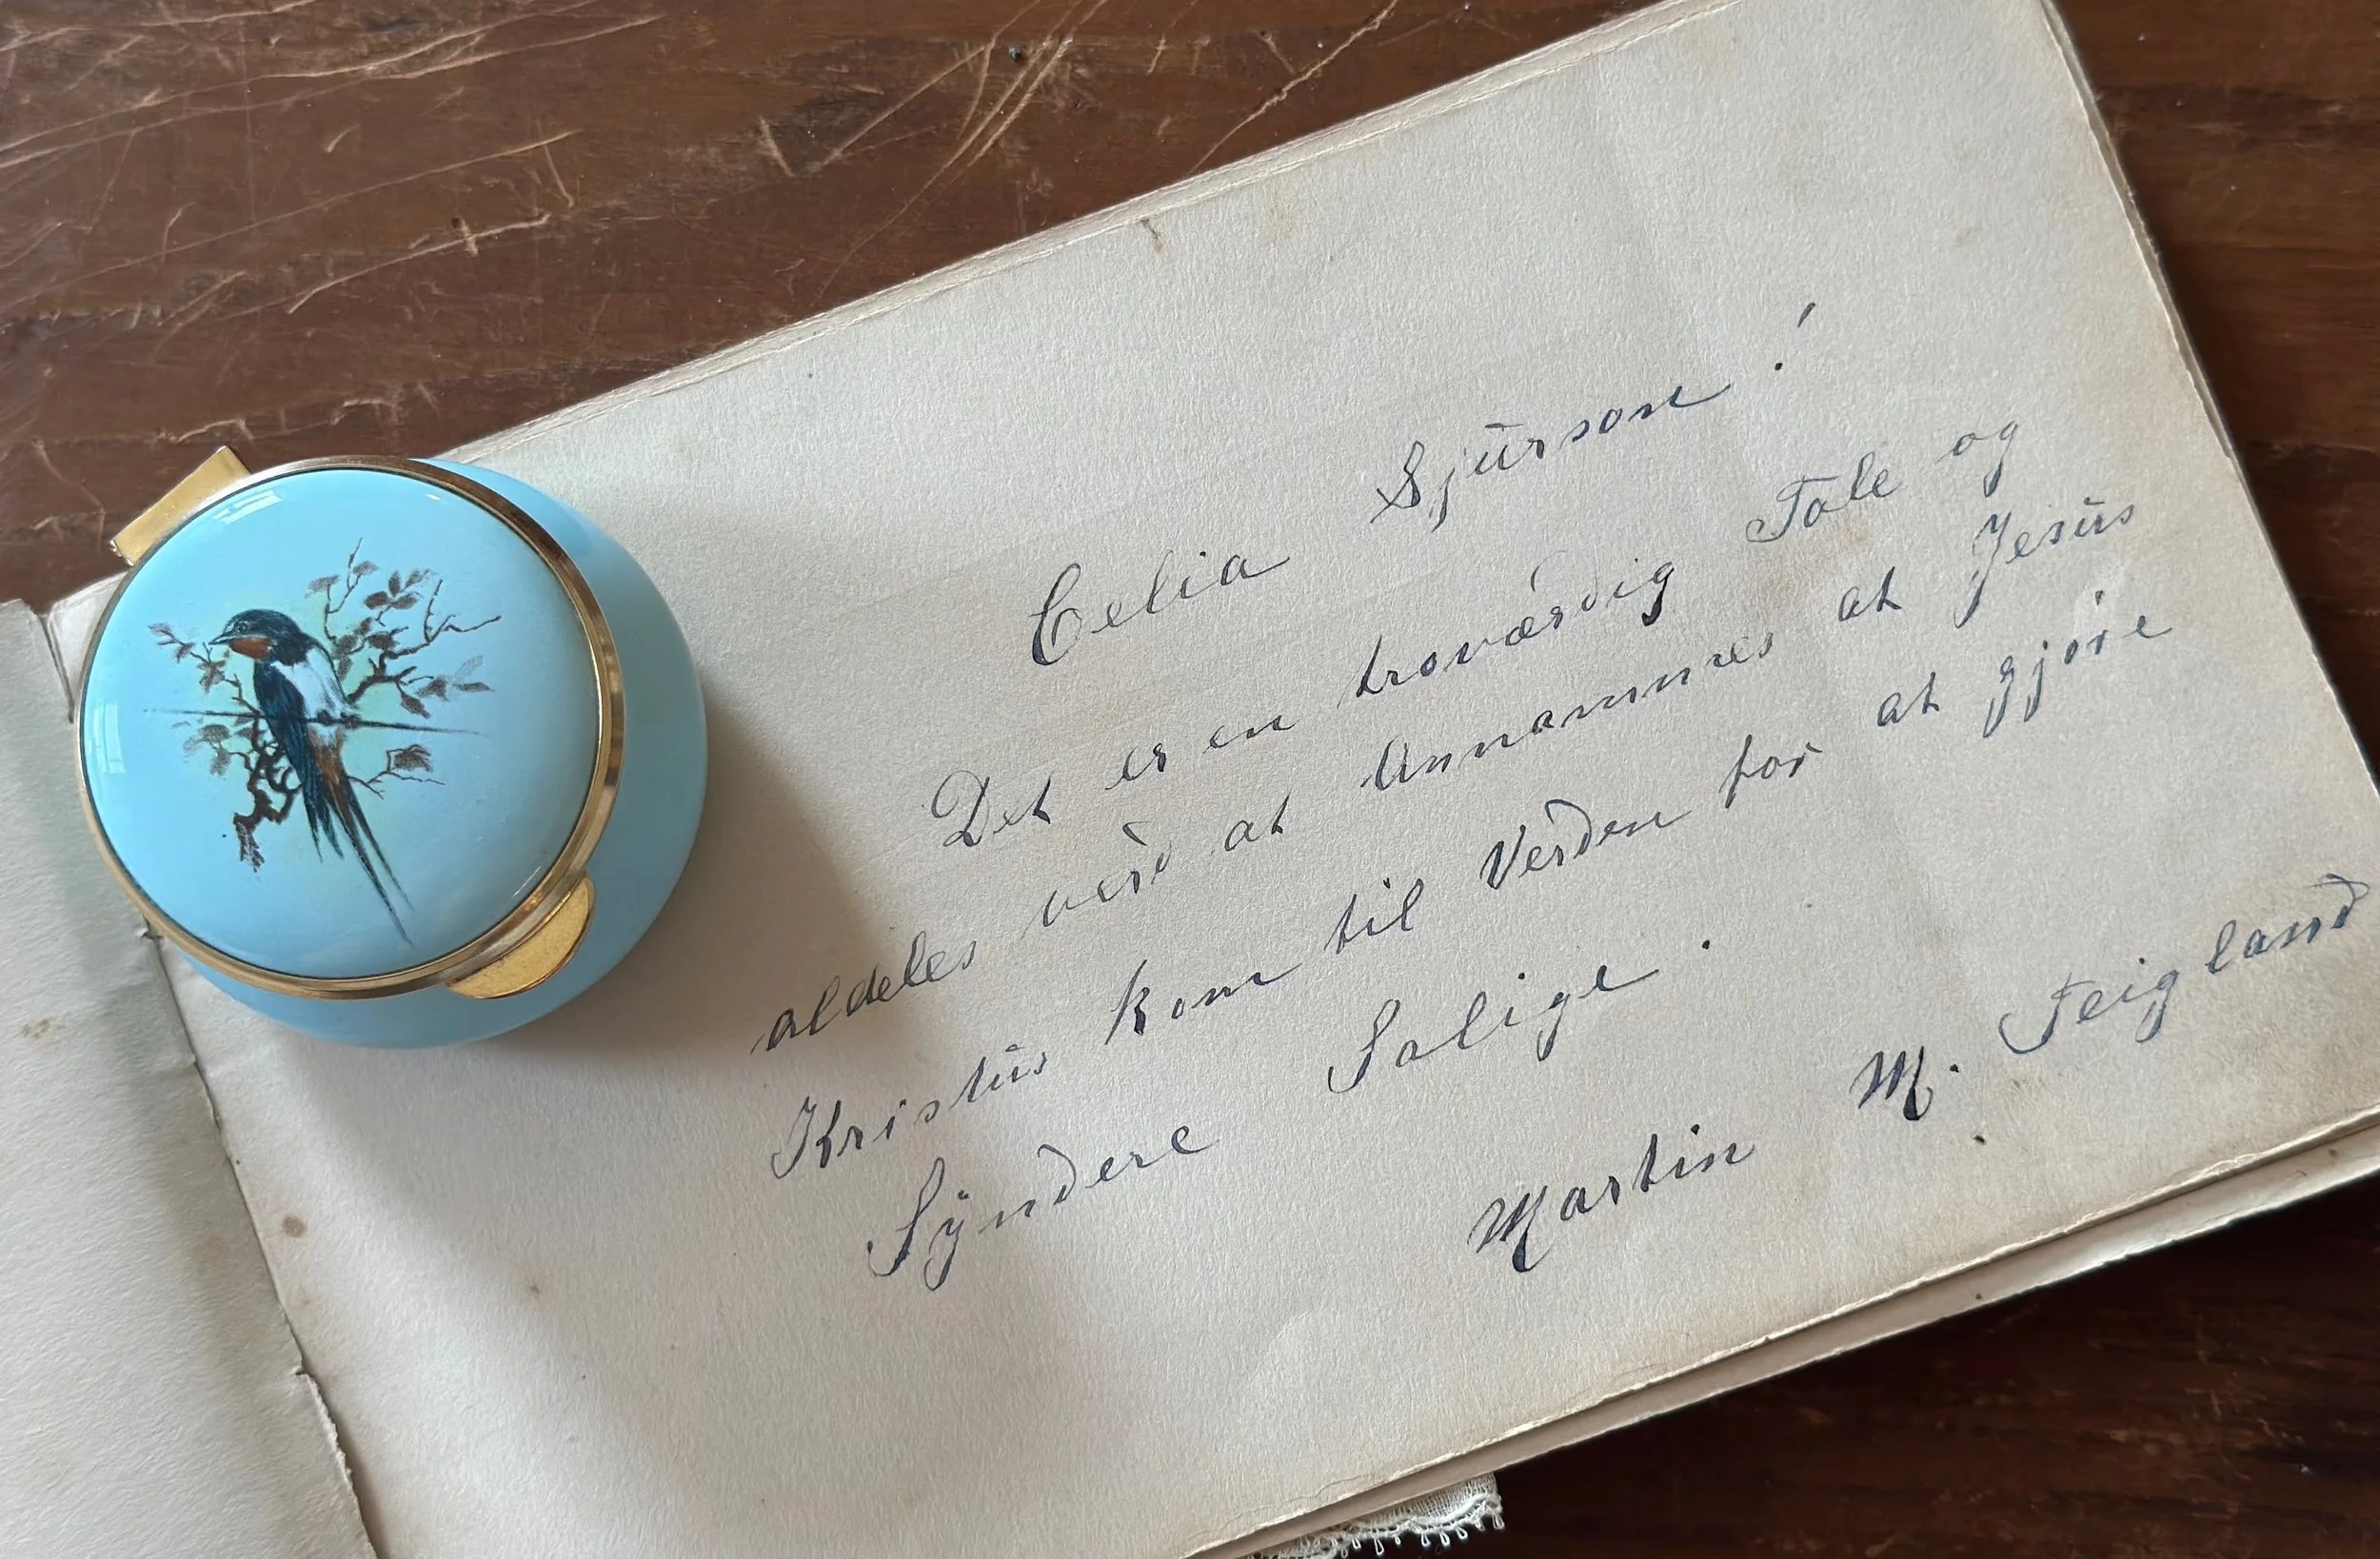 Celia Sjürson!
Det er en troværdig Tale og
aldeles værd at Annammes at Jesus
Kristus kom til Verden for at gjøre
Syndere Salige.
Martin M. Feigland